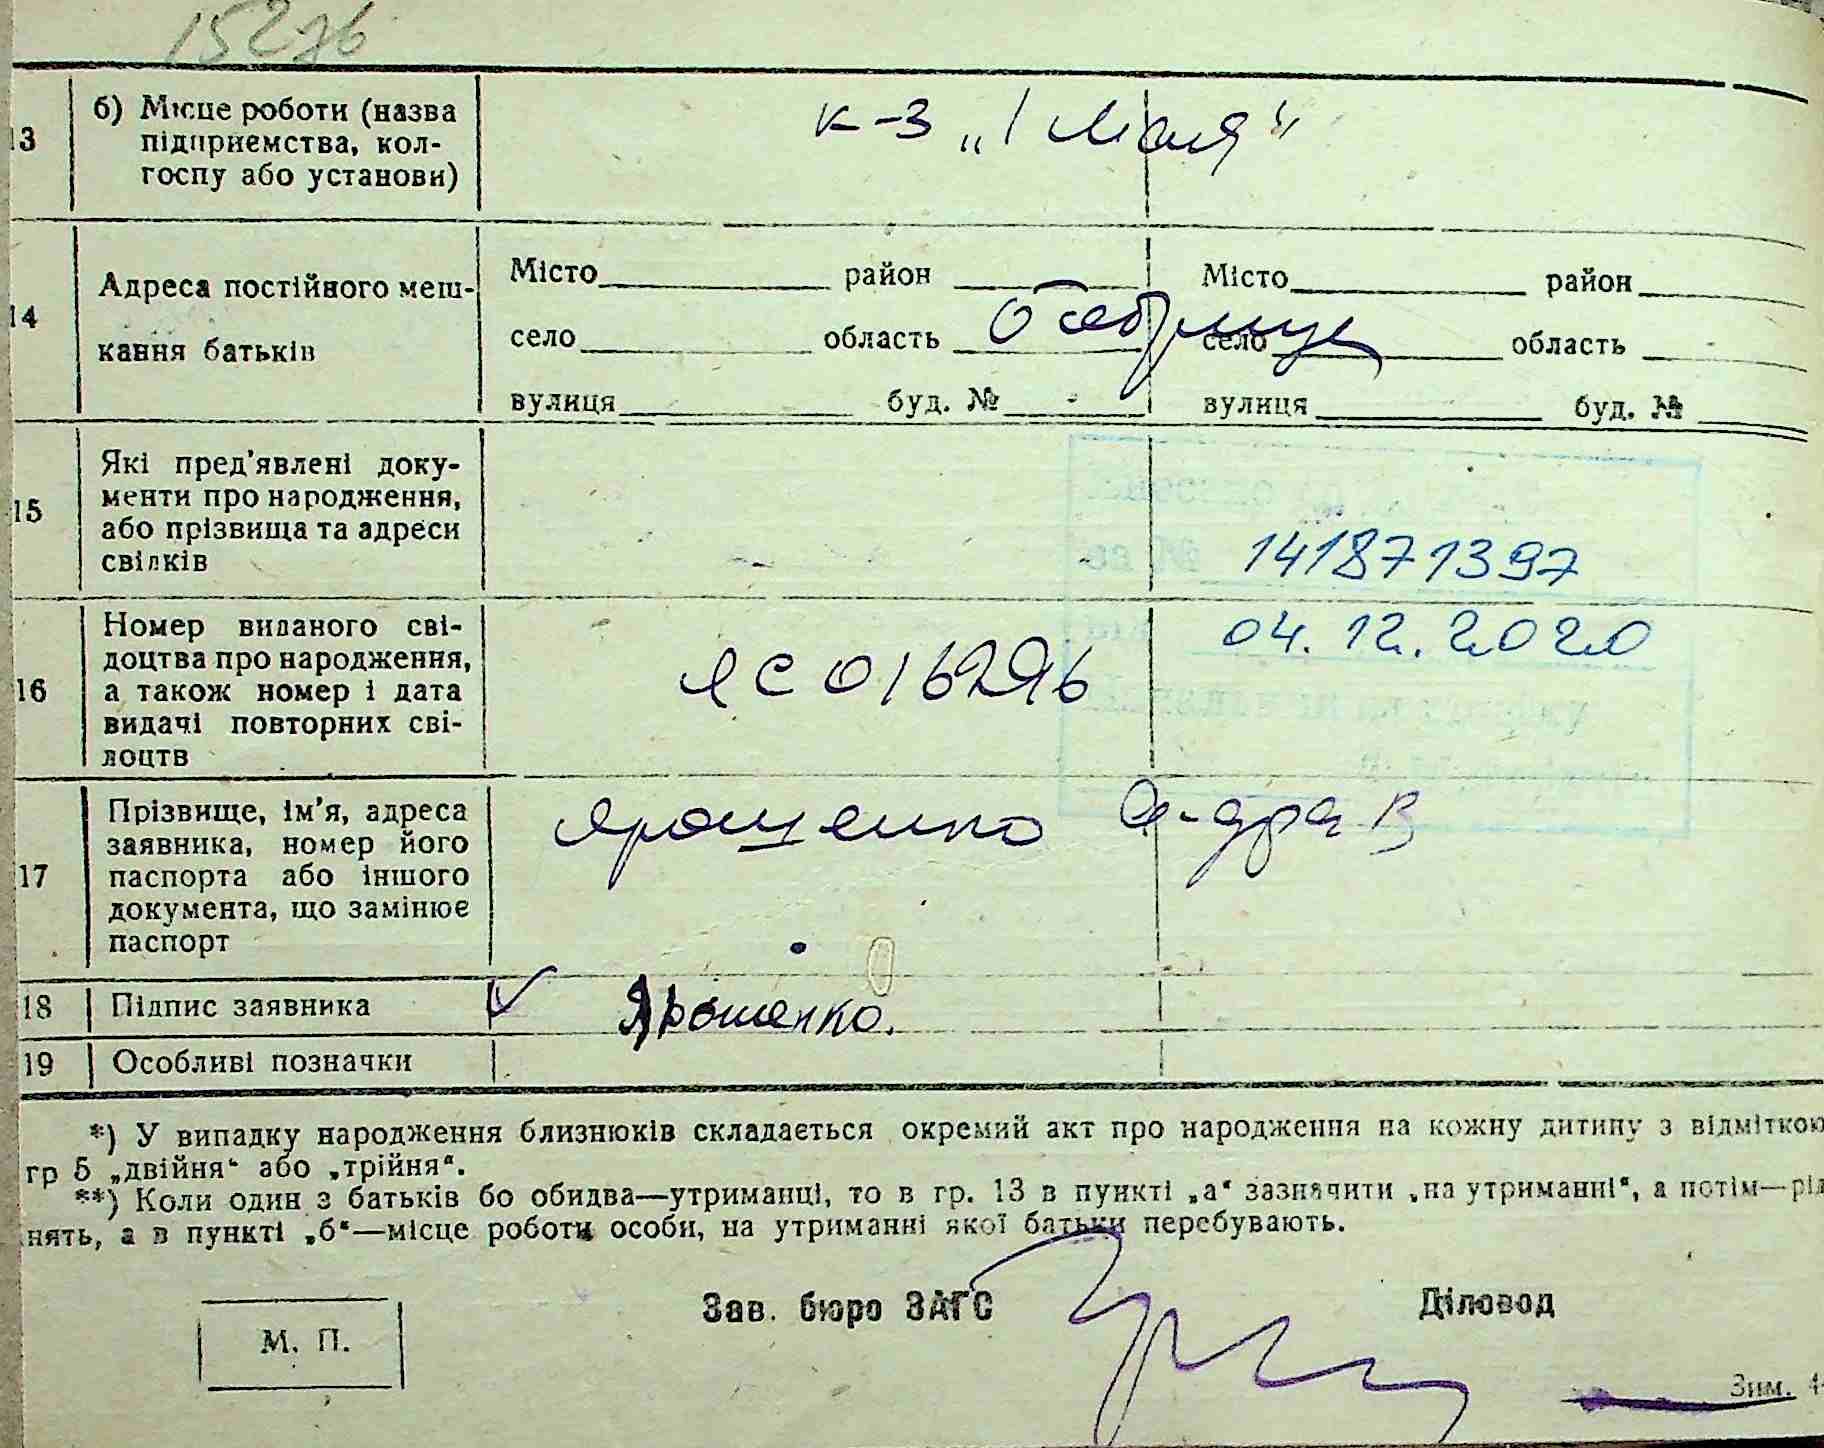 15276
13 б) Місце роботи (назва
підприємства, кол-
госпу або установи)
к-з „1 Мая“
14 Адреса постійного меш-
кання батьків
Місто район Місто район
село область село область
вулиця буд. № вулиця буд. №
15 Які пред'явлені доку-
менти про народження,
або прізвища та адреси
свідків
141871397
16 Номер виданого сві-
доцтва про народження,
а також номер і дата
видачі повторних сві-
доцтв
ЯС 016296
04.12.2020
17 Прізвище, ім'я, адреса
заявника, номер його
паспорта або іншого
документа, що замінює
паспорт
Ярошенко
18 Підпис заявника Ярошенко.
19 Особливі позначки
*) У випадку народження близнюків складається окремий акт про народження на кожну дитину з відміткою
гр 5 „двійня“ або „трійня“.
**) Коли один з батьків бо обидва—утриманці, то в гр. 13 в пункті „а“ зазначити „на утриманні“, а потім—рід
нять, а в пункті „б“—місце роботи особи, на утриманні якої батьки перебувають.
Зав. бюро ЗАГС Діловод
М. П.
Зим.